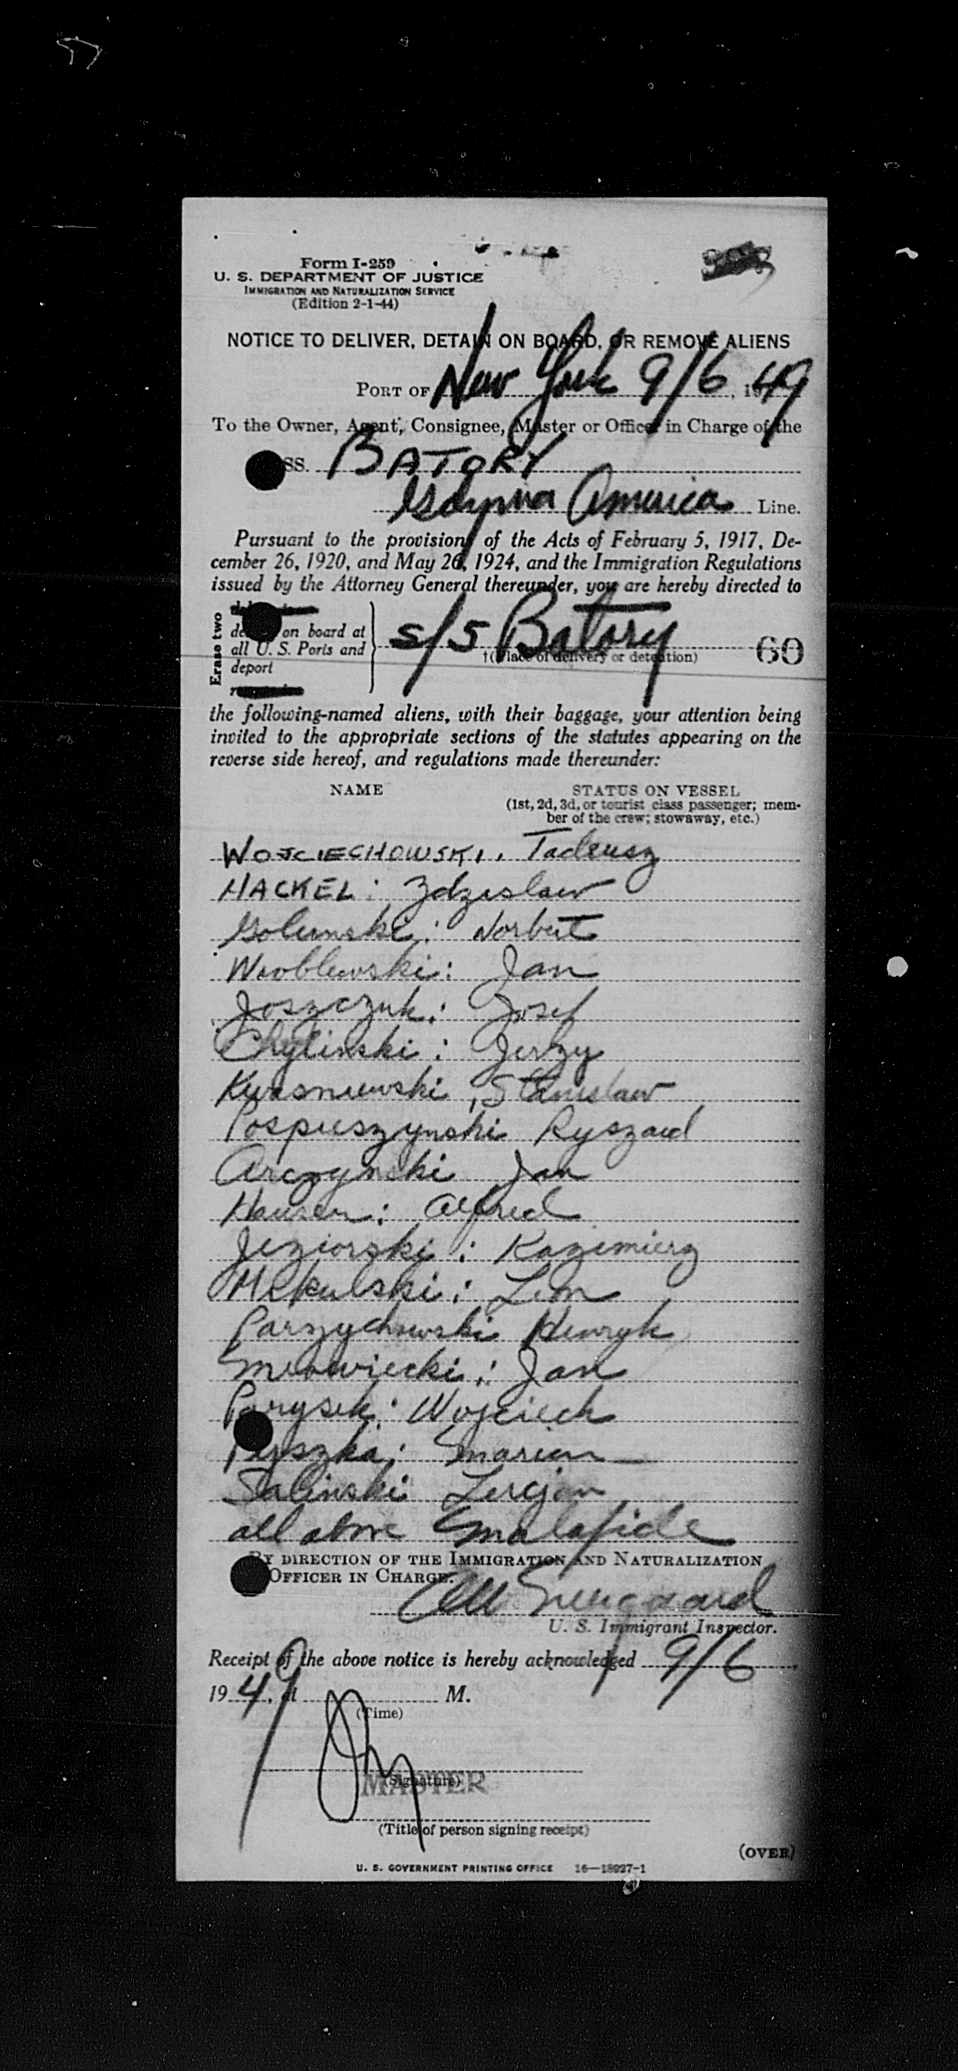 57
Form I-259
U. S. DEPARTMENT OF JUSTICE
IMMIGRATION AND NATURALIZATION SERVICE
(Edition 2-1-44)
NOTICE TO DELIVER, DETAIN ON BOARD, OR REMOVE ALIENS
PORT OF New York 9/6, 1949
To the Owner, Agent, Consignee, Master or Officer in Charge of the
SS. BATORY
Gdynia America Line.
Pursuant to the provisions of the Acts of February 5, 1917, De-
cember 26, 1920, and May 26, 1924, and the Immigration Regulations
issued by the Attorney General thereunder, you are hereby directed to
Erase two
on board at
all U. S. Ports and
deport
s/s Batory
†(Place of delivery or detention)
60
the following-named aliens, with their baggage, your attention being
invited to the appropriate sections of the statutes appearing on the
reverse side hereof, and regulations made thereunder:
NAME STATUS ON VESSEL
(1st, 2d, 3d, or tourist class passenger; mem-
ber of the crew; stowaway, etc.)
WOJCIECHOWSKI, Tadeusz
HACKEL: Zdzislaw
Golimski: Norbert
Wroblewski: Jan
Joszczuk: Josef
Chylinski: Jerzy
Kwasniewski, Stanislaw
Pospieszynski Ryszard
Arczynski Jan
Hausen: Alfred
Jeziorski: Kazimierz
Mikulski: Leon
Parzychowski Henryk
Mrowiecki: Jan
Parysek: Wojciech
Pyszka: Marian
Salinski Lucjan
all above malafide
BY DIRECTION OF THE IMMIGRATION AND NATURALIZATION
OFFICER IN CHARGE.
U. S. Immigrant Inspector.
Receipt of the above notice is hereby acknowledged 9/6,
1949, at M.
(Time)
(Signature)
MASTER
(Title of person signing receipt)
(OVER)
U. S. GOVERNMENT PRINTING OFFICE 16—18927-1